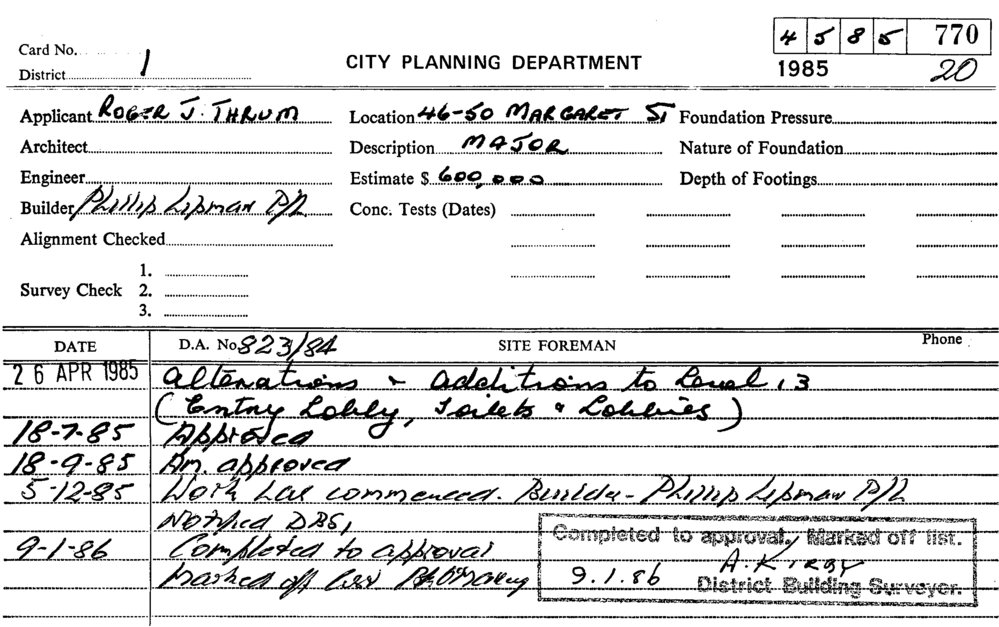 4 5 8 5 770
Card No.
CITY PLANNING DEPARTMENT
1985 20
District 1
Applicant ROGER J. THRUM Location 46-50 MARGARET ST Foundation Pressure
Architect Description MAJOR Nature of Foundation
Engineer Estimate $ 600,000 Depth of Footings
Builder Phillip Lipman P/L Conc. Tests (Dates)
Alignment Checked
1.
Survey Check 2.
3.
DATE D.A. No 823/84 SITE FOREMAN Phone
26 APR 1985 Alterations & additions to Level 13
(Entry Lobby, Toilets & Lobbies)
18-7-85 Approved
18-9-85 Am. approved
5-12-85 Work has commenced. Builder - Phillip Lipman P/L
Notified DBS,
9-1-86 Completed to approval
marked off list
Completed to approval, Marked off list.
A. KIRBY
9.1.86 District Building Surveyor.